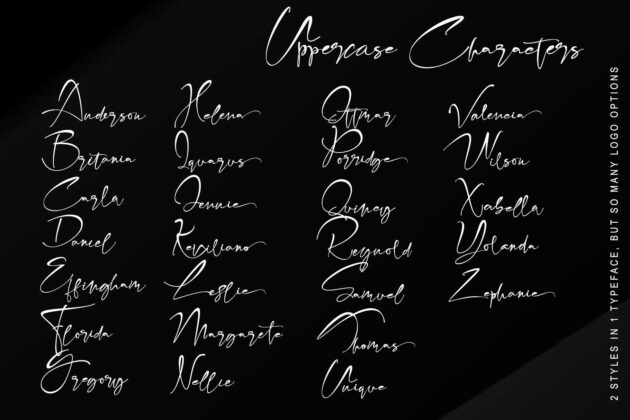 Uppercase Characters
Anderson
Britania
Carla
Daniel
Effingham
Florida
Gregory
Helena
Iquarus
Jennie
Leslie
Margarete
Nellie
Ottmar
Porridge
Quincy
Reynold
Samuel
Thomas
Unique
Valencia
Wilson
Xabella
Yolanda
Zephanie
2 STYLES IN 1 TYPEFACE, BUT SO MANY LOGO OPTIONS